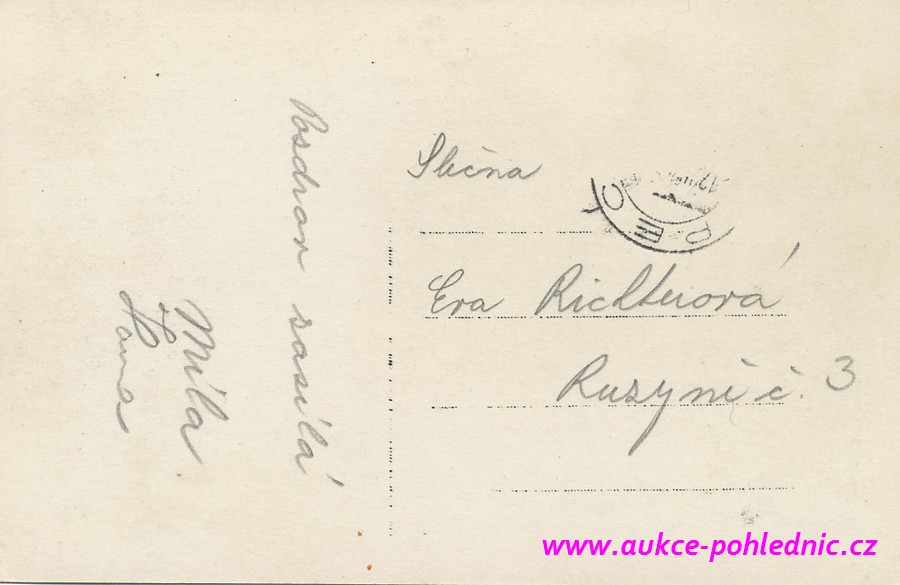 Pozdrav zasílá
Míla
Hana
Slečna
Eva Richterová
Ruzyně č. 3
www.aukce-pohlednic.cz